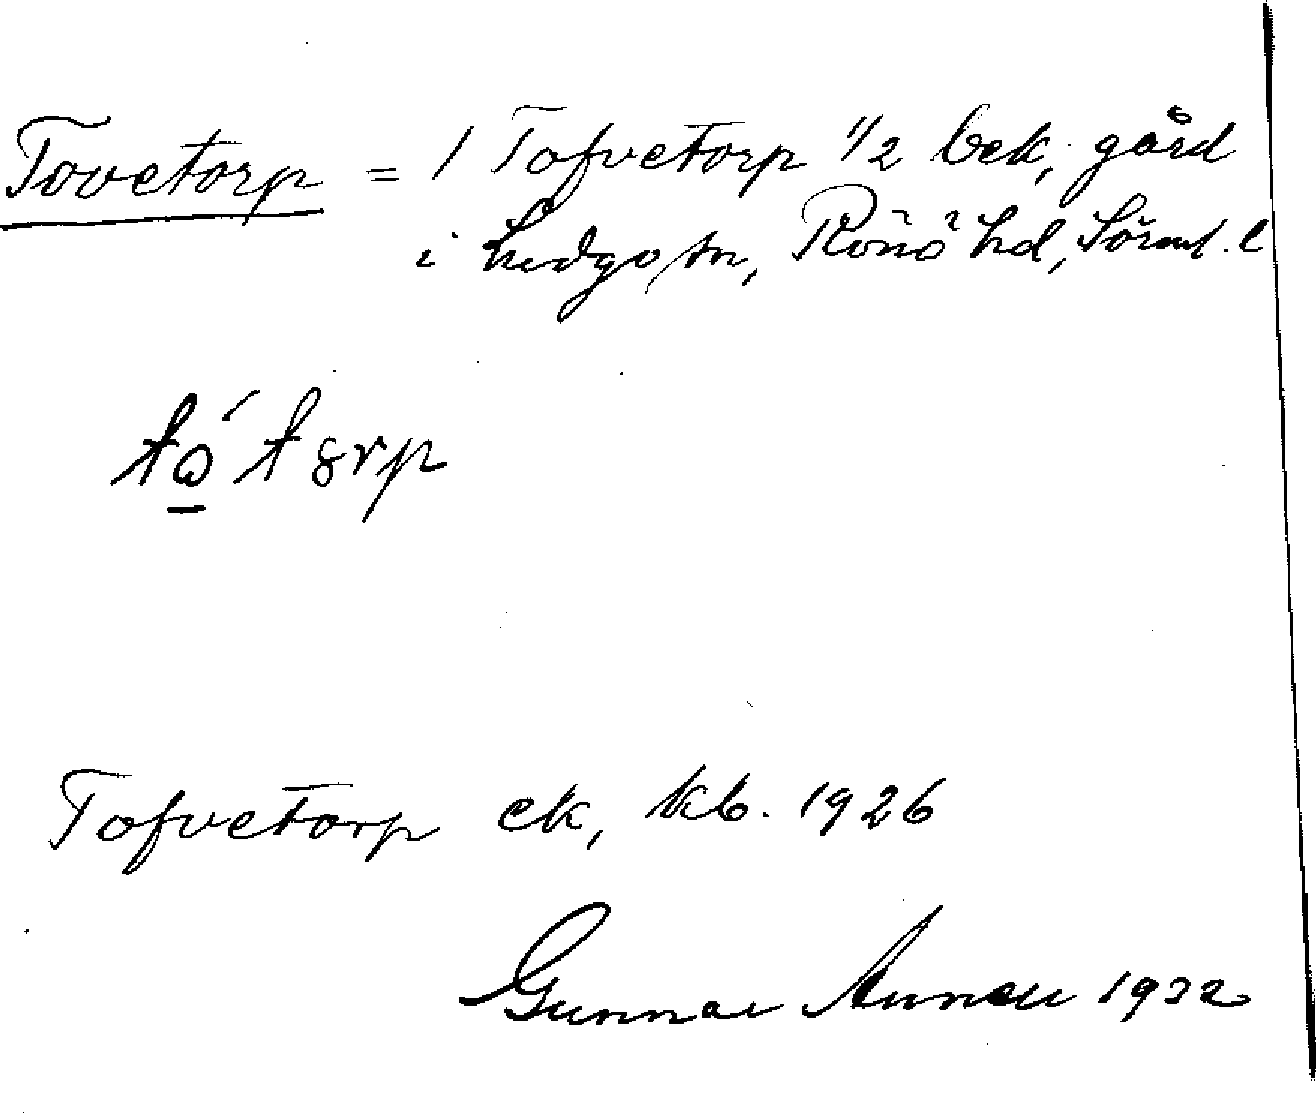 Tovetorp = 1 Tofvetorp 1/2 bek, gård
i Ludgo sn, Rönö hd, Sörml. l
tώtȣrp
Tofvetorp ek, kb. 1926
Gunnar 1932